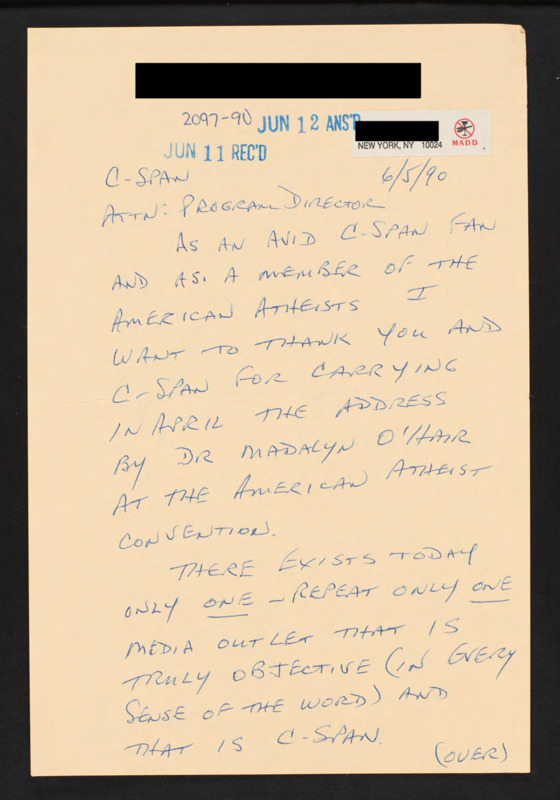 2097-90 JUN 12 ANS'D
NEW YORK, NY 10024 MADD
JUN 11 REC'D
C-SPAN 6/5/90
ATTN: PROGRAM DIRECTOR
AS AN AVID C-SPAN FAN
AND AS. A MEMBER OF THE
AMERICAN ATHEISTS I
WANT TO THANK YOU AND
C-SPAN FOR CARRYING
IN APRIL THE ADDRESS
BY DR MADALYN O'HAIR
AT THE AMERICAN ATHEIST
CONVENTION.
THERE EXISTS TODAY
ONLY ONE - REPEAT ONLY ONE
MEDIA OUTLET THAT IS
TRULY OBJECTIVE (IN EVERY
SENSE OF THE WORD) AND
THAT IS C-SPAN.
(OVER)